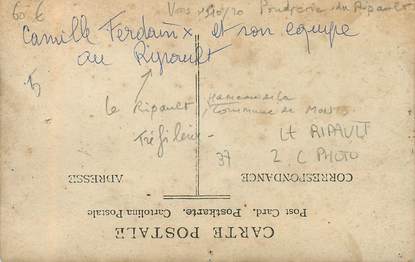 60 €
Vers 1910/20 Poudrerie du Ripault
Camille Ferdoinx et son équipe
au Ripault
le Ripault, hameau de la
commune de MONTS
Tréfilerie
37
Lt RIPAULT
2 C PHOTO
CORRESPONDANCE
ADRESSE
Post Card. Postkarte. Cartolina Postale
CARTE POSTALE